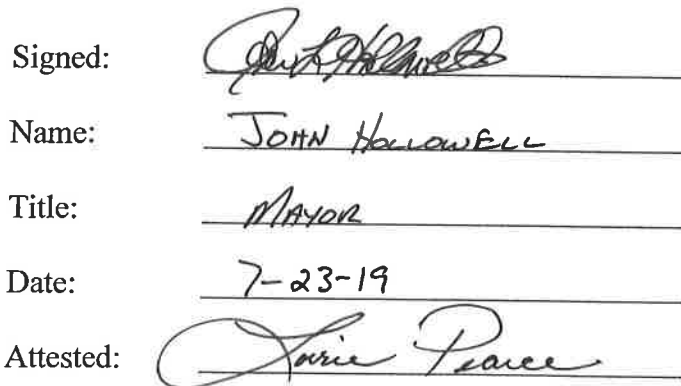 Signed: John L Hollowell
Name: JOHN HOLLOWELL
Title: MAYOR
Date: 7-23-19
Attested: Lorie Pearce